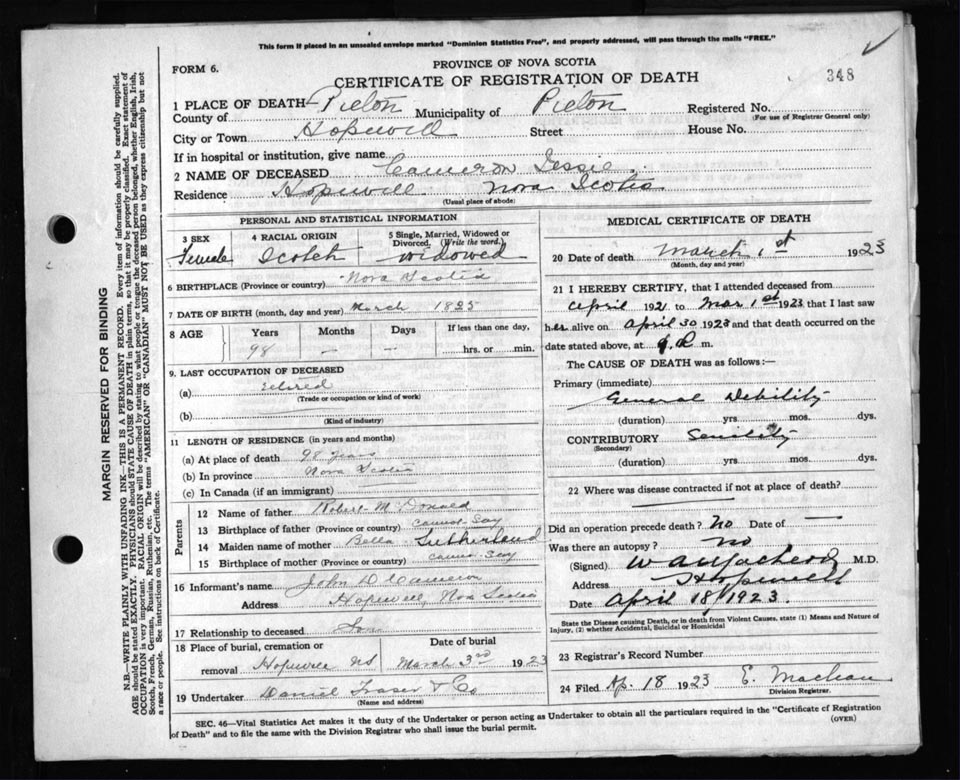 This form if placed in an unsealed envelope marked "Dominion Statistics Free", and property addressed, will pass through the mails "FREE."
FORM 6.
PROVINCE OF NOVA SCOTIA
CERTIFICATE OF REGISTRATION OF DEATH
348
1 PLACE OF DEATH—
County of Pictou Municipality of Pictou Registered No.
(For use of Registrar General only)
City or Town Hopewell Street House No.
If in hospital or institution, give name
2 NAME OF DECEASED Cameron Jessie
Residence Hopewell Nova Scotia
(Usual place of abode)
PERSONAL AND STATISTICAL INFORMATION
3 SEX 4 RACIAL ORIGIN 5 Single, Married, Widowed or Divorced, (Write the word.)
Female Scotch widowed
6 BIRTHPLACE (Province or country) Nova Scotia
7 DATE OF BIRTH (month, day and year) March 1825
8 AGE Years Months Days If less than one day
98 — — hrs. or min.
9. LAST OCCUPATION OF DECEASED
(a) retired
(Trade or occupation or kind of work)
(b)
(Kind of industry)
11 LENGTH OF RESIDENCE (in years and months)
(a) At place of death 98 years
(b) In province Nova Scotia
(c) In Canada (if an immigrant)
Parents
12 Name of father Robert McDonald
13 Birthplace of father (Province or country) cannot say
14 Maiden name of mother Bella Sutherland
15 Birthplace of mother (Province or country) cannot say
16 Informant's name John D Cameron
Address Hopewell, Nova Scotia
17 Relationship to deceased Son
18 Place of burial, cremation or removal Hopewell NS
Date of burial March 3rd 1923
19 Undertaker Daniel Fraser & Co
(Name and address)
MEDICAL CERTIFICATE OF DEATH
20 Date of death March 1st 1923
(Month, day and year)
21 I HEREBY CERTIFY, that I attended deceased from
April 1921 to Mar 1st 1923 that I last saw
her alive on April 30 1923 and that death occurred on
date stated above, at m.
The CAUSE OF DEATH was as follows:—
Primary (immediate)
General Debility
(duration) yrs. mos. dys.
CONTRIBUTORY Senility
(Secondary)
(duration) yrs. mos. dys.
22 Where was disease contracted if not at place of death?
Did an operation precede death? No Date of —
Was there an autopsy? no
(Signed) M.D.
Address Hopewell
Date April 18/1923.
State the Disease causing Death, or in death from Violent Causes, state (1) Means and Nature of Injury, (2) whether Accidental, Suicidal or Homicidal
23 Registrar's Record Number
24 Filed Ap. 18 1923 E. Maclean
Division Registrar.
SEC. 46—Vital Statistics Act makes it the duty of the Undertaker or person acting as Undertaker to obtain all the particulars required in the "Certificate of Registration
of Death" and to file the same with the Division Registrar who shall issue the burial permit.
(OVER)
MARGIN RESERVED FOR BINDING
N.B.—WRITE PLAINLY WITH UNFADING INK—THIS IS A PERMANENT RECORD. Every item of information should be carefully supplied.
AGE should be stated EXACTLY. PHYSICIANS should STATE CAUSE OF DEATH in plain terms, so that it may be properly classified. Exact statement of
OCCUPATION is very important. RACIAL ORIGIN will be described by stating to what people or tongue the deceased person belonged, whether English, Irish,
Scotch, French, German, Russian, Ruthenian, etc. The terms "AMERICAN" OR "CANADIAN" MUST NOT BE USED as they express citizenship but not
a race or people. See instructions on back of Certificate.